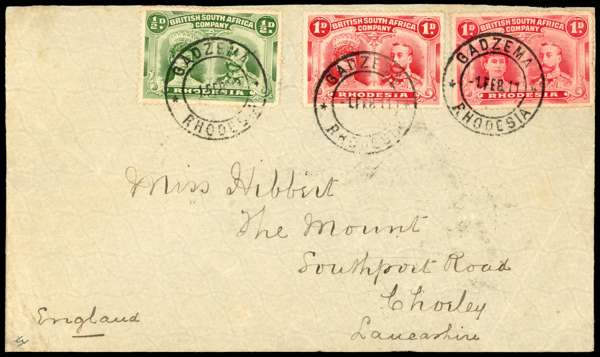 ½d. BRITISH SOUTH AFRICA COMPANY ½d.
RHODESIA
1D BRITISH SOUTH AFRICA COMPANY 1D
RHODESIA
1D BRITISH SOUTH AFRICA COMPANY 1D
RHODESIA
GADZEMA
RHODESIA
GADZEMA
-1.FEB.11
RHODESIA
GADZEMA
-1.FEB.11
RHODESIA
Miss Hibbert
The Mount
Southport Road
Chorley
Lancashire
England